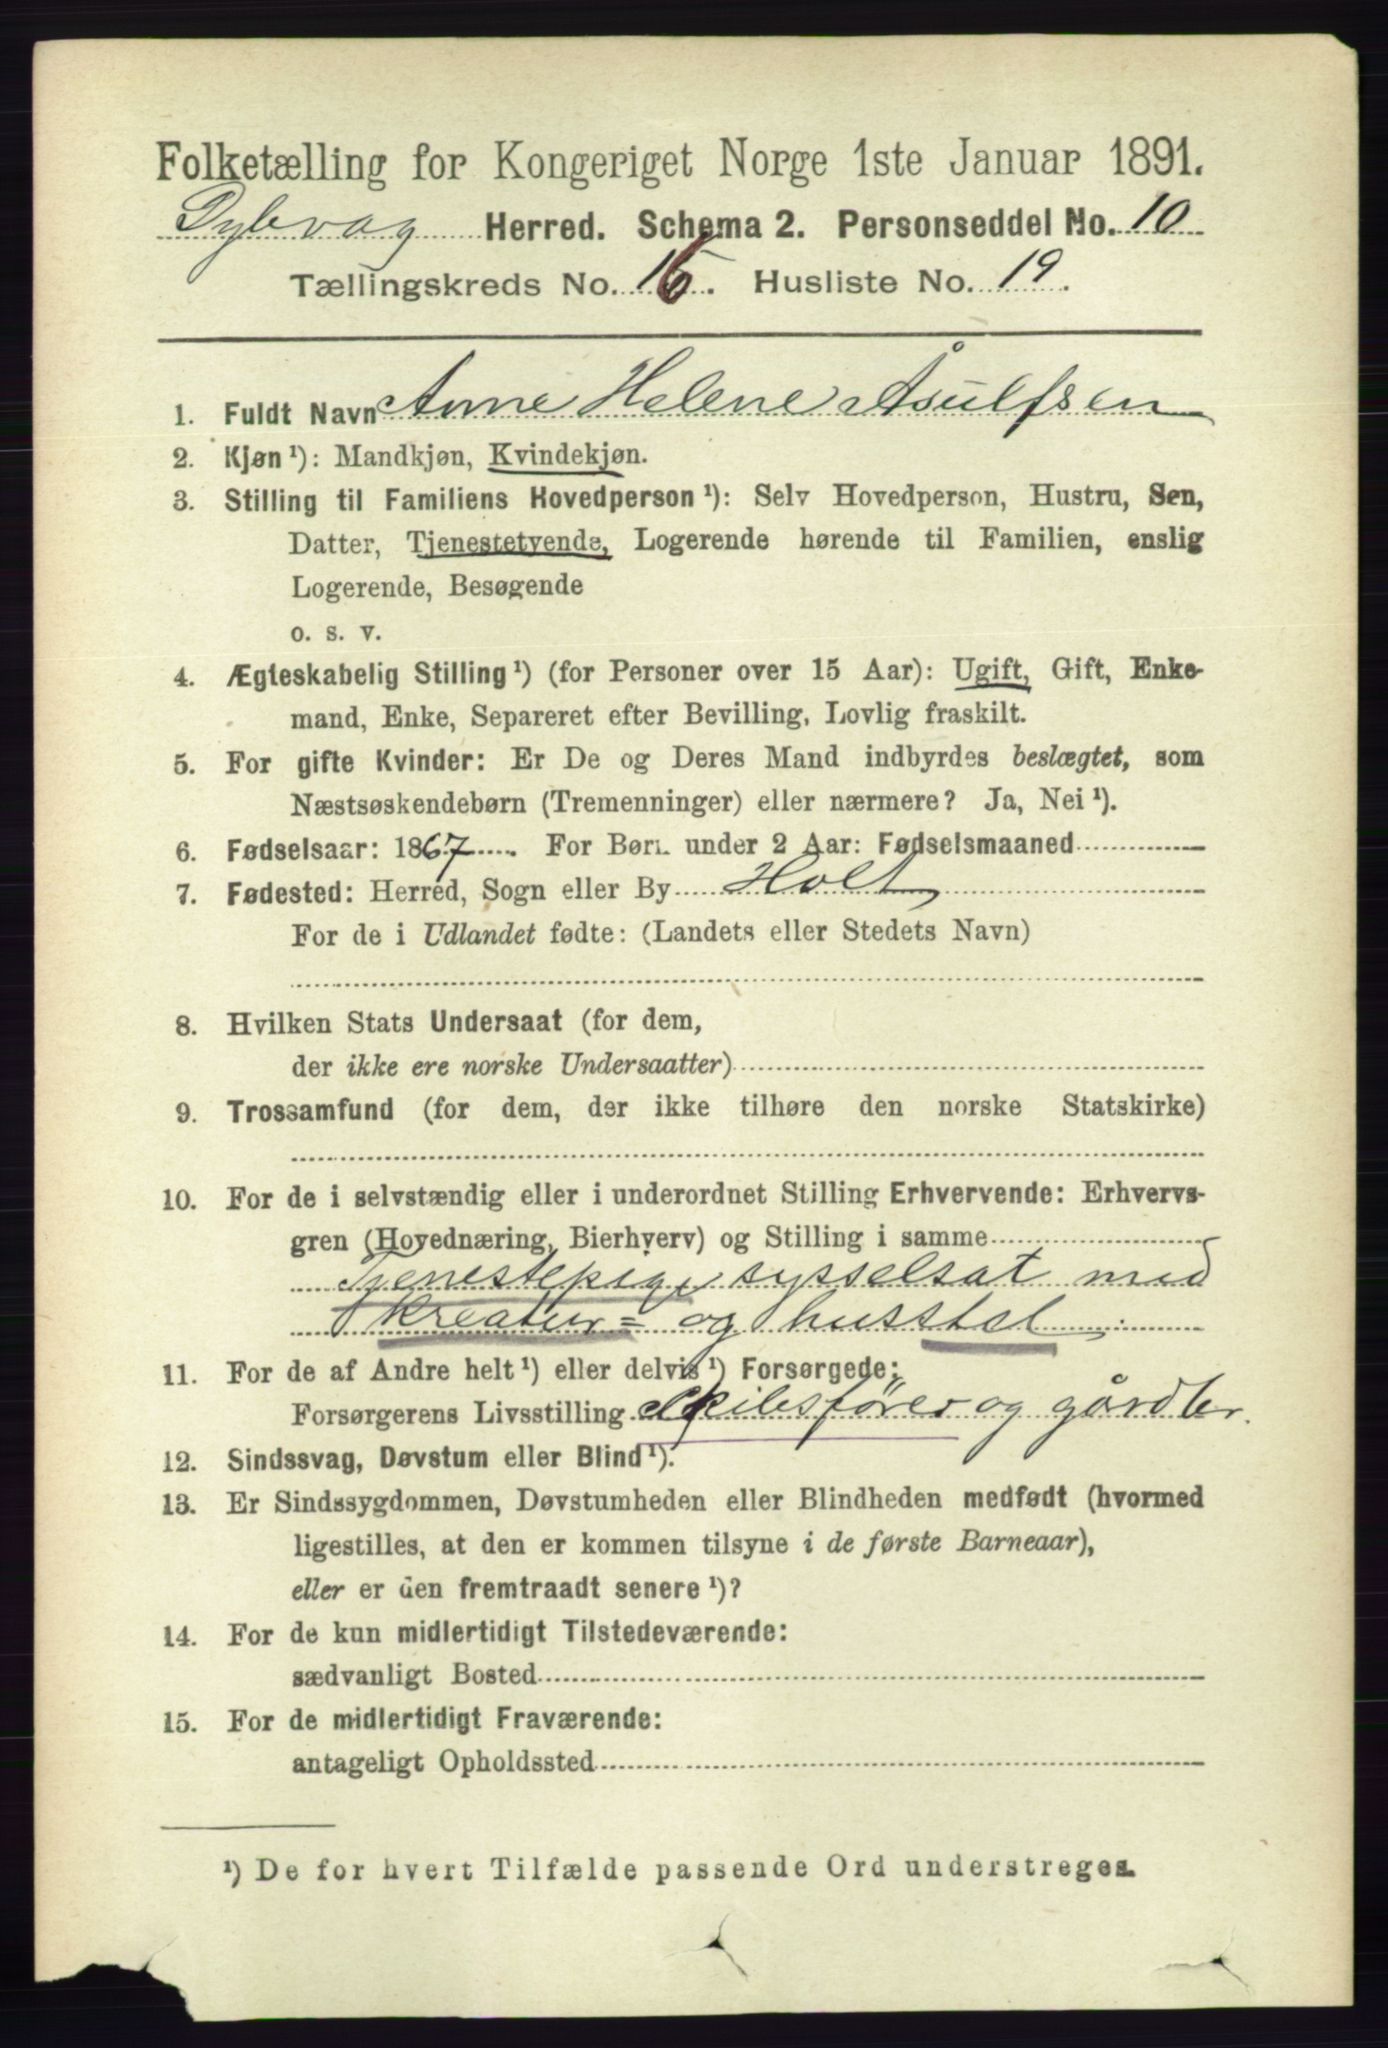 Folketælling for Kongeriget Norge 1ste Januar 1891.
Dybvag Herred. Schema 2. Personseddel No. 10
Tællingskreds No. 16. Husliste No. 19.
1. Fuldt Navn Anne Helene Åsulfsen
2. Kjøn ¹): Mandkjøn, Kvindekjøn.
3. Stilling til Familiens Hovedperson ¹): Selv Hovedperson, Hustru, Søn,
Datter, Tjenestetyende, Logerende hørende til Familien, enslig
Logerende, Besøgende
o. s. v.
4. Ægteskabelig Stilling ¹) (for Personer over 15 Aar): Ugift, Gift, Enke-
mand, Enke, Separeret efter Bevilling, Lovlig fraskilt.
5. For gifte Kvinder: Er De og Deres Mand indbyrdes beslægtet, som
Næstsøskendebørn (Tremenninger) eller nærmere? Ja, Nei ¹).
6. Fødselsaar: 1867. For Børn under 2 Aar: Fødselsmaaned
7. Fødested: Herred, Sogn eller By Holt
For de i Udlandet fødte: (Landets eller Stedets Navn)
8. Hvilken Stats Undersaat (for dem,
der ikke ere norske Undersaatter)
9. Trossamfund (for dem, der ikke tilhøre den norske Statskirke)
10. For de i selvstændig eller i underordnet Stilling Erhvervende: Erhvervs-
gren (Hovednæring, Bierhverv) og Stilling i samme
Tjenestepige sysselsat med
kreatur= og husstel
11. For de af Andre helt ¹) eller delvis ¹) Forsørgede:
Forsørgerens Livsstilling Skibsfører og gårdbr.
12. Sindssvag, Døvstum eller Blind ¹).
13. Er Sindssygdommen, Døvstumheden eller Blindheden medfødt (hvormed
ligestilles, at den er kommen tilsyne i de første Barneaar),
eller er den fremtraadt senere ¹)?
14. For de kun midlertidigt Tilstedeværende:
sædvanligt Bosted
15. For de midlertidigt Fraværende:
antageligt Opholdssted
¹) De for hvert Tilfælde passende Ord understreges.